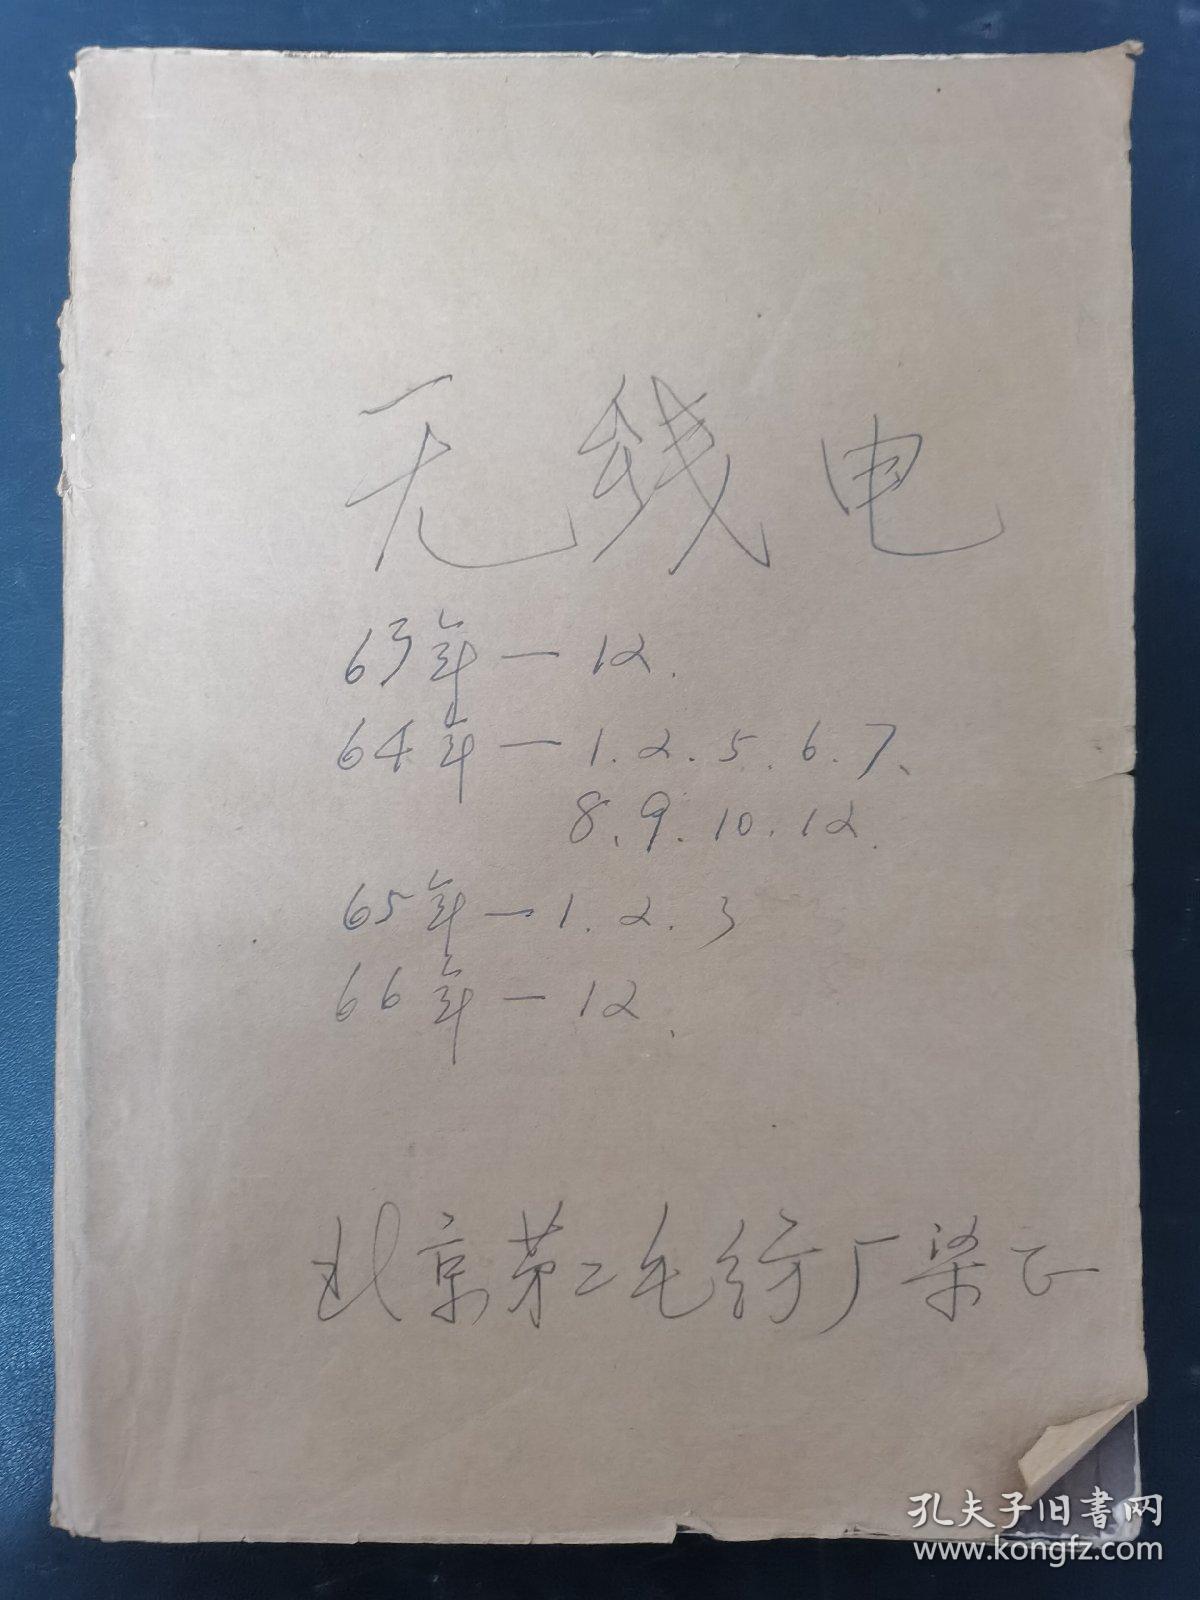 无线电
63年—12.
64年—1.2.5.6.7、
8、9.10.12.
65年—1.2.3
66年—12、
北京第二毛纺厂染正
孔夫子旧书网
www.kongfz.com